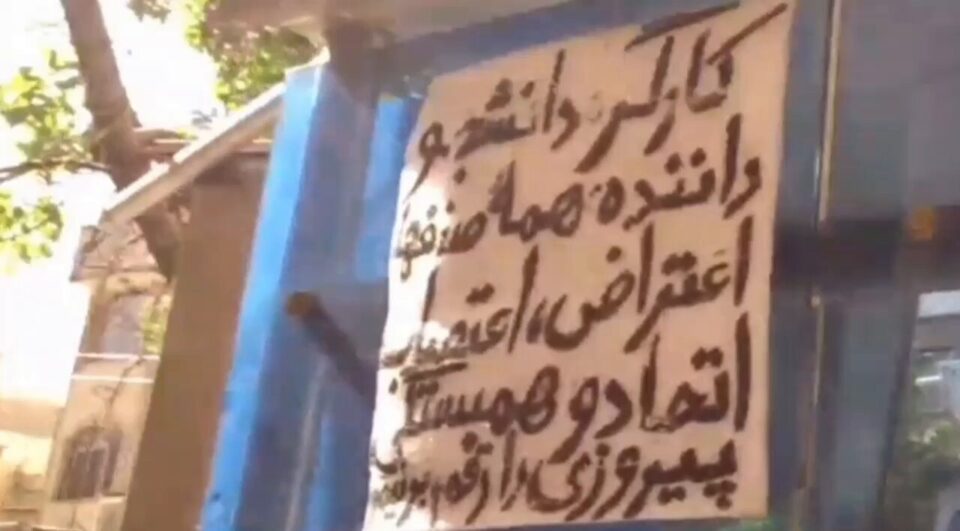 کارگر، دانشجو
راننده، همه صنفها
اعتراض، اعتصاب
اتحاد و همبستگی
پیروزی را رقم بزنیم